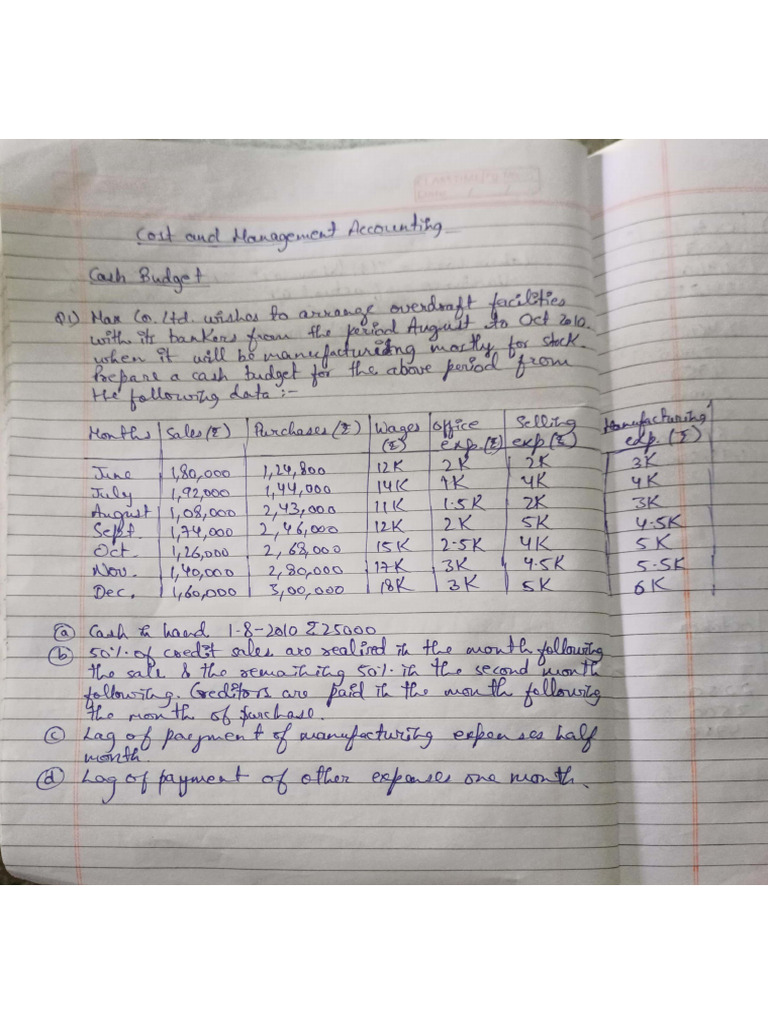 Cost and Management Accounting
Cash Budget
Q1) Max Co. Ltd. wishes to arrange overdraft facilities
with its bankers from the period August to Oct 2010.
when it will be manufacturing mostly for stock.
Prepare a cash budget for the above period from
the following data :-
Months Sales (₹) Purchases (₹) Wages (₹) Office exp. (₹) Selling exp (₹) Manufacturing exp. (₹)
June 1,80,000 1,24,800 12K 2K 2K 3K
July 1,92,000 1,44,000 14K 1K 4K 4K
August 1,08,000 2,43,000 11K 1.5K 2K 3K
Sept. 1,74,000 2,46,000 12K 2K 5K 4.5K
Oct. 1,26,000 2,68,000 15K 2.5K 4K 5K
Nov. 1,40,000 2,80,000 17K 3K 4.5K 5.5K
Dec. 1,60,000 3,00,000 18K 3K 5K 6K
(a) Cash in hand 1-8-2010 ₹25000
(b) 50% of credit sales are realised in the month following
the sale & the remaining 50% in the second month
following. Creditors are paid in the month following
the month of purchase.
(c) Lag of payment of manufacturing expenses half
month.
(d) Lag of payment of other expenses one month.